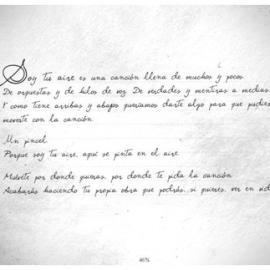 Soy tu aire es una canción llena de muchos y pocos.
De orquestas y de hilos de voz. De verdades y mentiras a medias.
Y como tiene arribas y abajos queríamos darte algo para que pudies
moverte con la canción.
Un pincel.
Porque soy tu aire, aquí se pinta en el aire.
Muévete por donde quieras, por donde te pida la canción.
Acabarás haciendo tu propia obra que podrás, si quieres, ver en